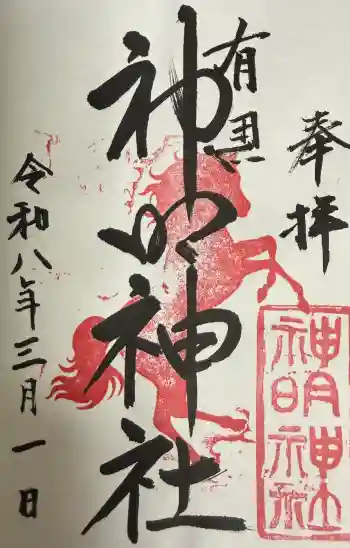 奉拝
有喜
神明神社
令和八年三月一日
神明神社